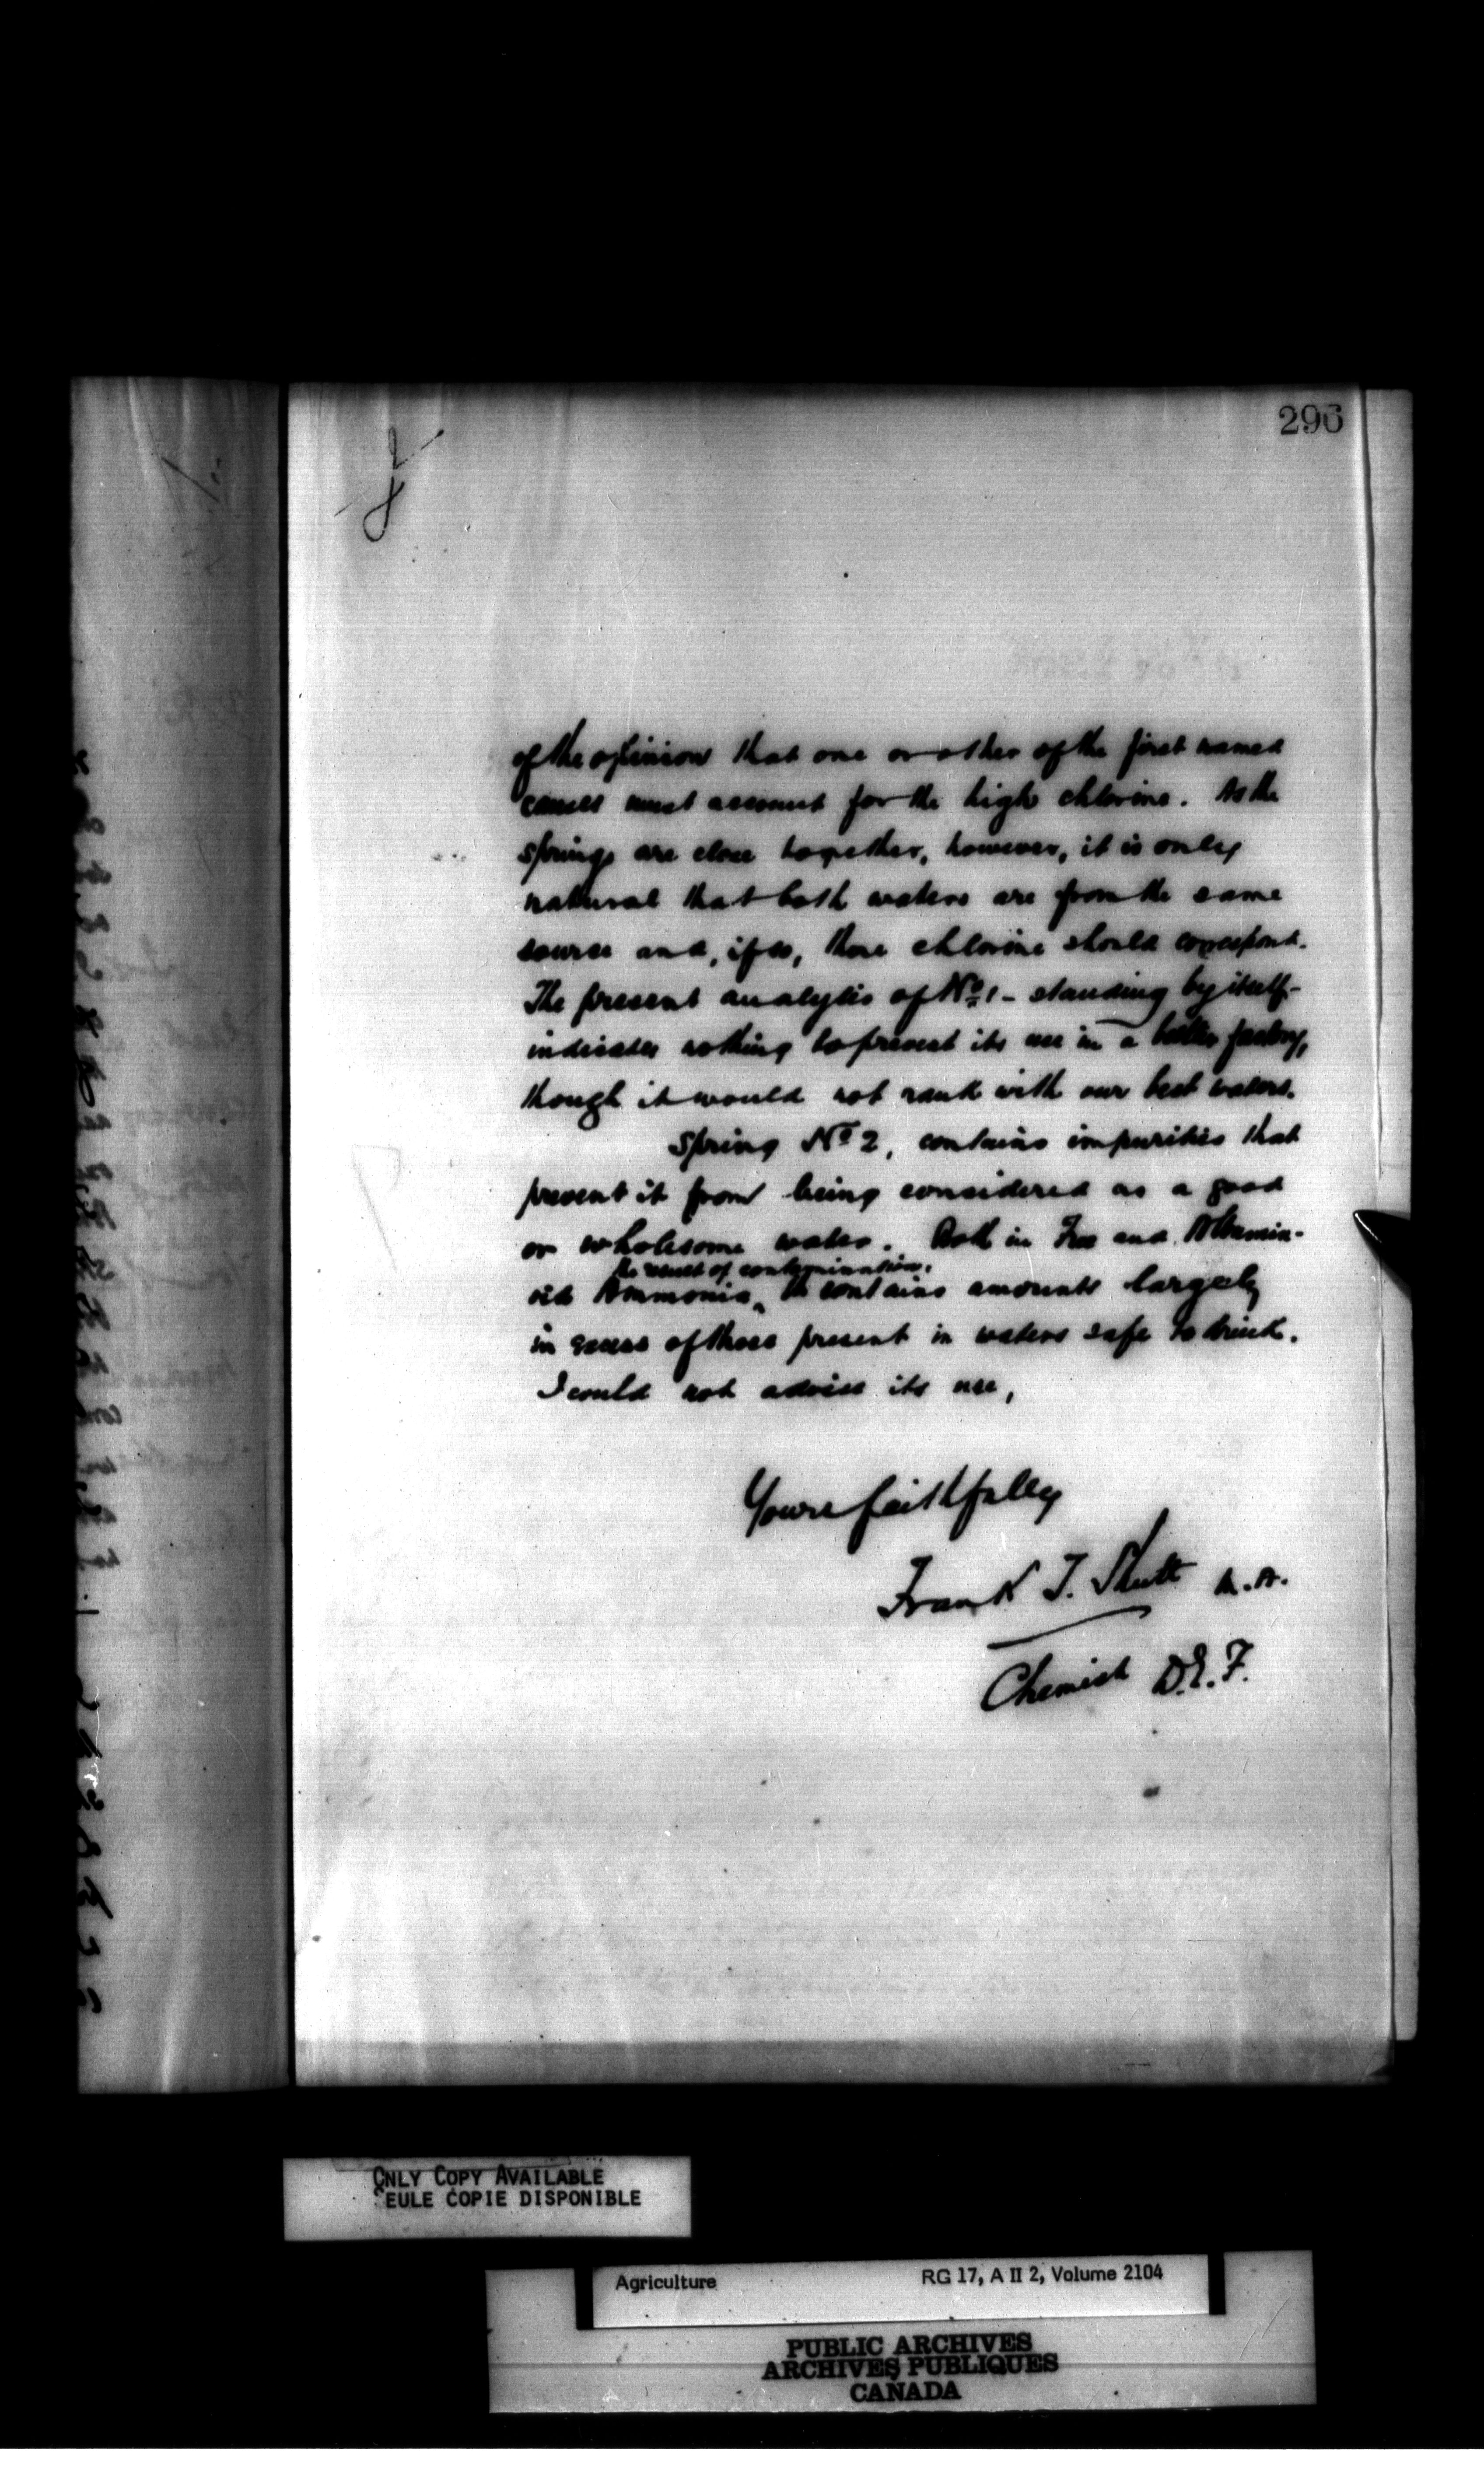 296
of the opinion that one or other of the first named
causes must account for the high chlorine. As the
springs are close together, however, it is only
natural that both waters are from the same
source and, if so, there chlorine should correspond.
The present analysis of No. 1 - standing by itself -
indicates nothing to prevent its use in a butter factory,
though it would not rank with our best waters.
Spring No 2, contains impurities that
prevent it from being considered as a good
or wholesome water. Both in Free and Albumin-
the result of contamination,
oid Ammonia, it contains amounts largely
in excess of those present in waters safe to drink.
I could not advise its use,
Yours faithfully
Frank T. Shutt M.A.
Chemist D.E.F.
ONLY COPY AVAILABLE
SEULE COPIE DISPONIBLE
Agriculture RG 17, A II 2, Volume 2104
PUBLIC ARCHIVES
ARCHIVES PUBLIQUES
CANADA